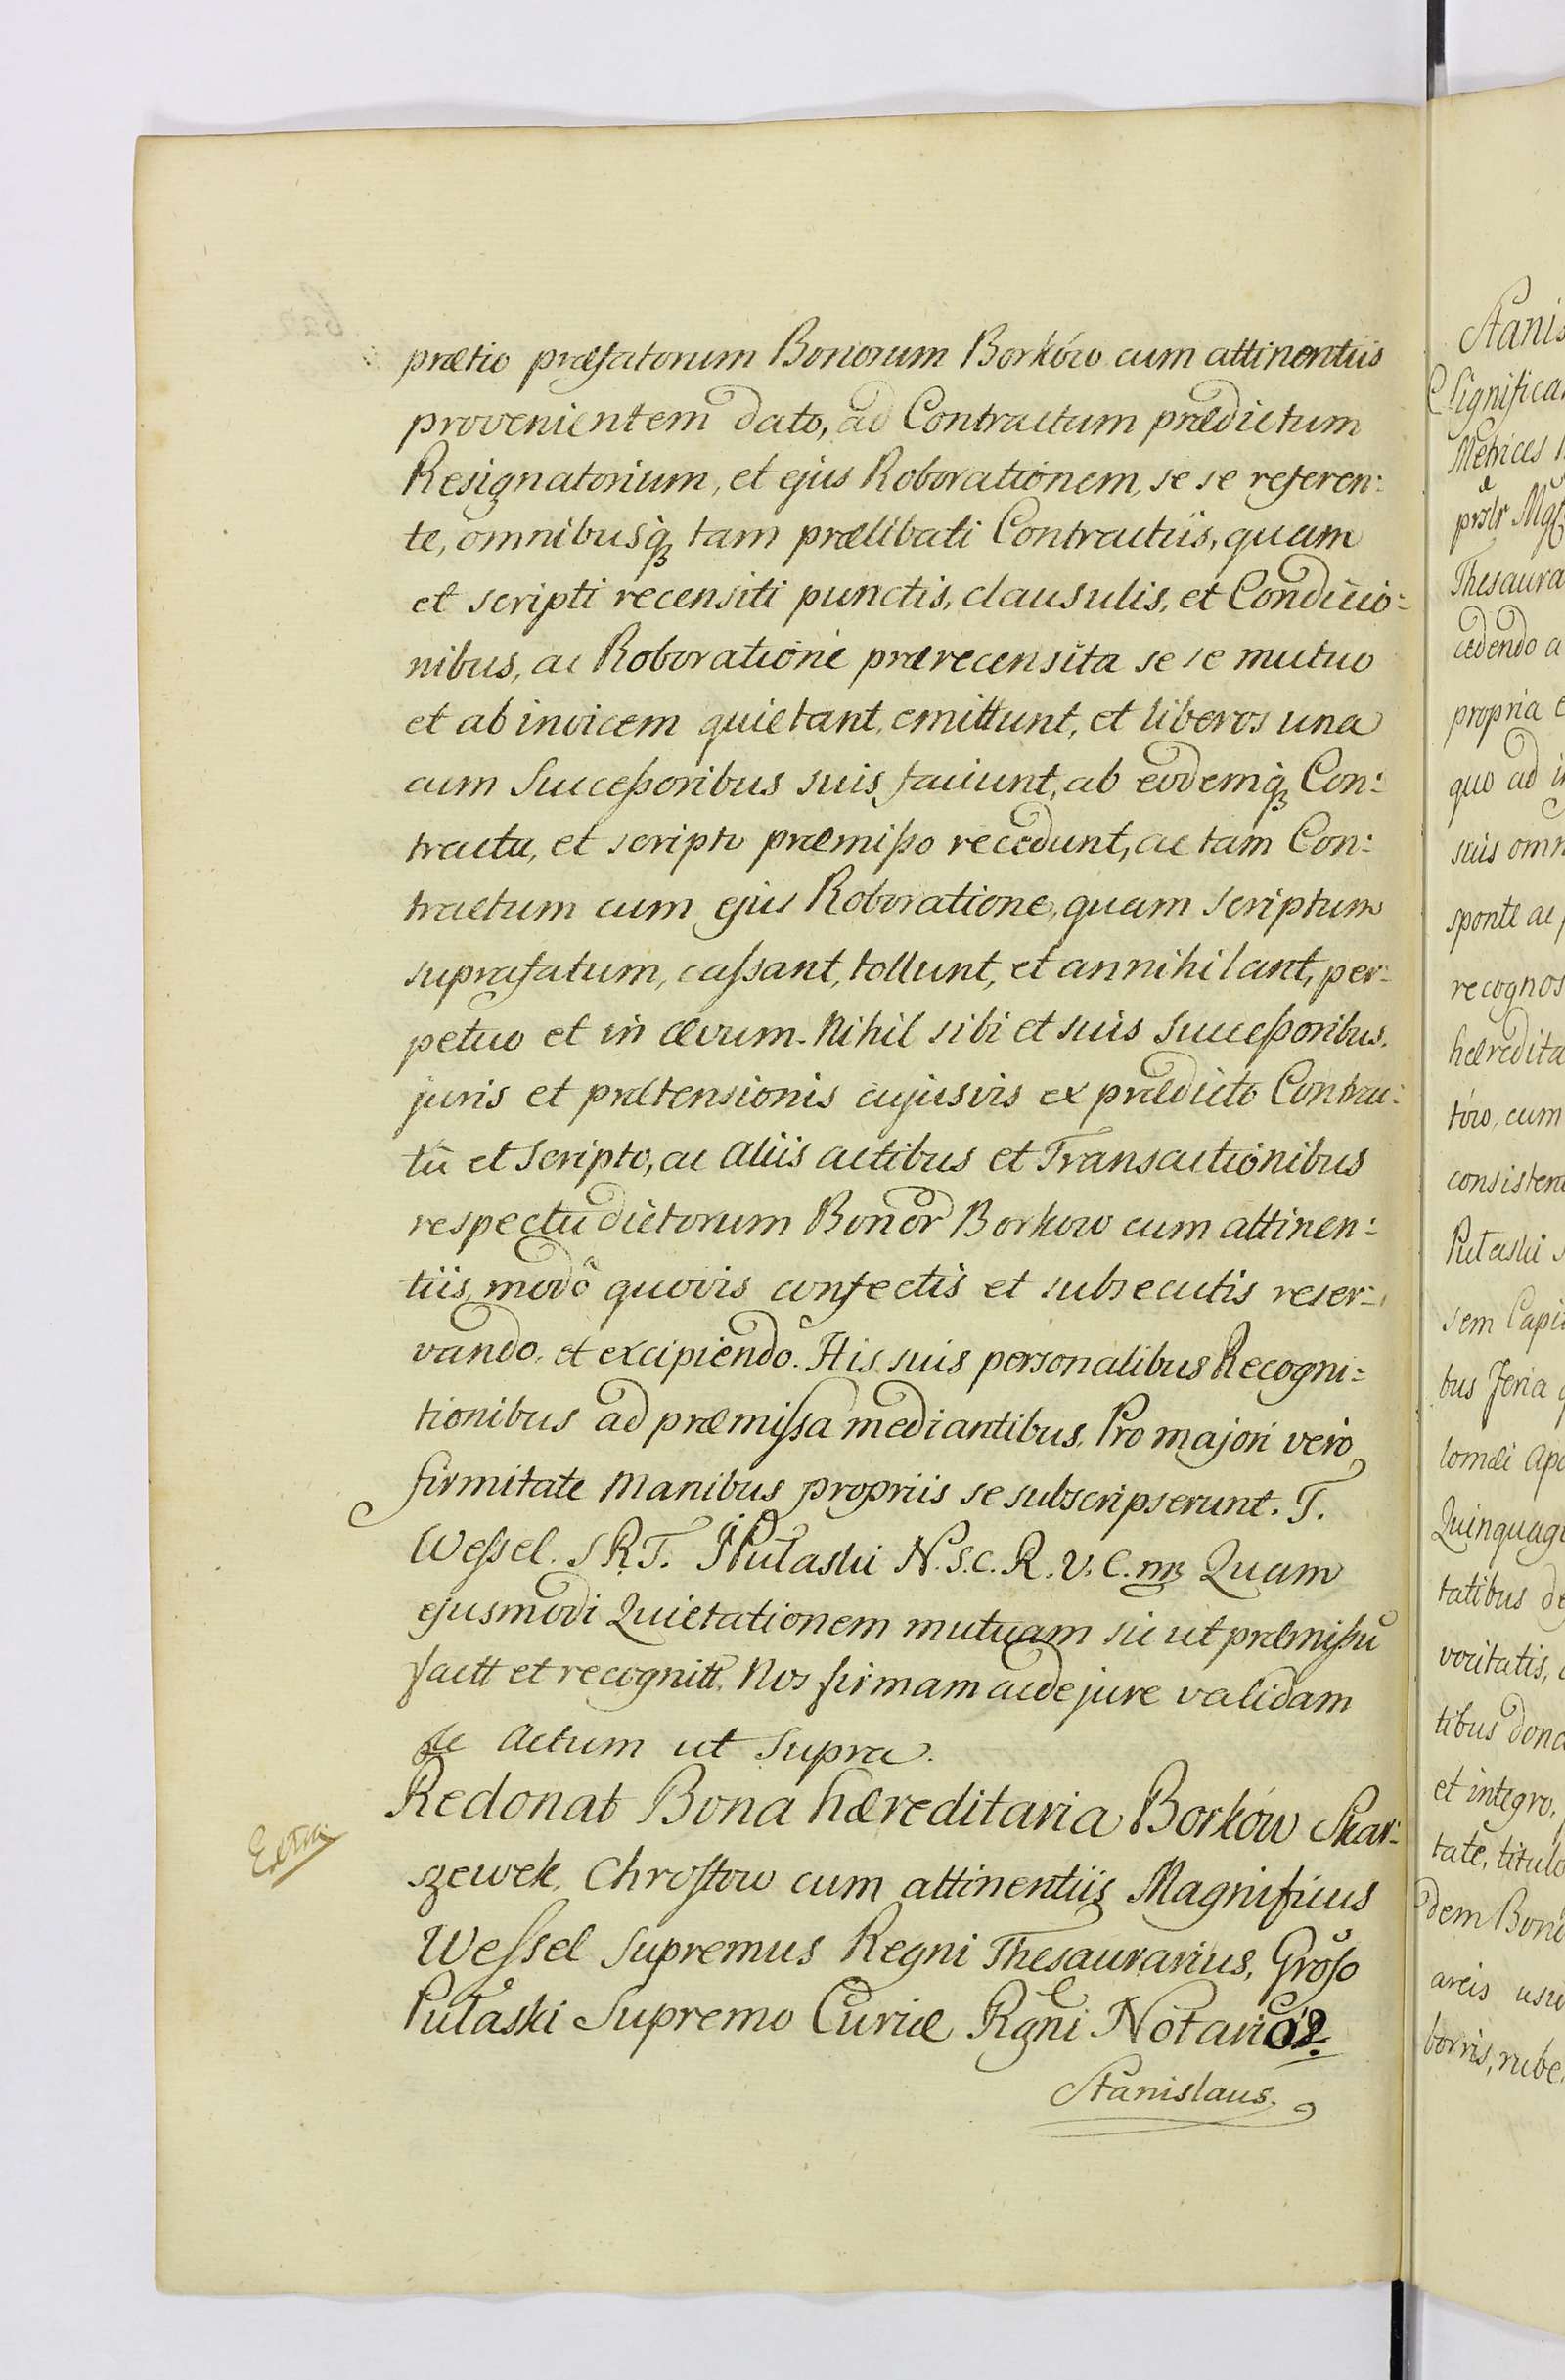 prætio præfatorum Bonorum Borków cum attinentiis
provenientem dato, ad Contractum prædictum
Resignatorium, et ejus Roborationem, se se referen:
te, omnibusq̃ tam prælibati Contractûs, quam
et scripti recensiti punctis, clausulis, et Conditio:
nibus, ac Roboratione prærecensita se se mutuo
et ab invicem quietant, emittunt, et liberos una
cum Successoribus suis faciunt, ab eodemq̃ Con:
tractu, et scripto præmisso recedunt, ac tam Con:
tractum cum ejus Roboratione, quam scriptum
suprafatum, cassant, tollunt, et annihilant, per:
petuo et in ævum. Nihil sibi et suis Successoribus,
juris et prætensionis cujusvis ex prædicto Contrac:
tû et Scripto, ac aliis actibus et Transactionibus
respectu dictorum Bonor Borkow cum attinen:
tiis, modô quovis confectis et subsecutis reser:
vando, et excipiendo. His suis personalibus Recogni:
tionibus ad præmissa mediantibus. Pro majori vero
firmitate Manibus propriis se subscripserunt. T.
Wessel. S R T. Pułaski N. S. C. R. V. C. mp Quam
ejusmodi Quietationem mutuam sic ut præmissũ
factt et recognitt. Nos firmam ac de jure validam
&c Actum ut Supra.
Redonat Bona hæreditaria Borków Skar:
szewek, Chrostow cum attinentiis Magnificus
Wessel Supremus Regni Thesaurarius, Groso
Pułaski Supremo Curiæ Rgni Notario
Stanislaus.
Stanis
Significa
Metrices
Thesaura
cedendo a
propria e
quo ad i
suis omn
sponte ac
recognos
hæredita
tów, cum
consisten
Pułaski s
sem Capi
bus Feria
lomæi Apo
Quinquage
tatibus de
tibus dona
et integro,
tate, titulo
dem Bono
areis usu
borris, rube